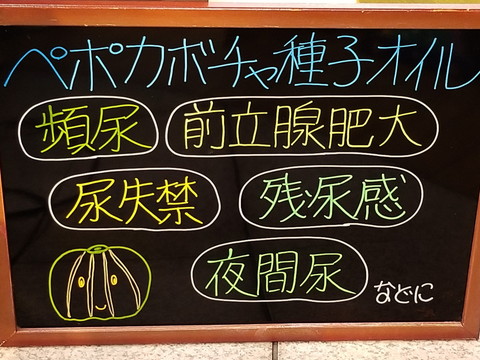 ペポカボチャ種子オイル
頻尿 前立腺肥大
尿失禁 残尿感
夜間尿 などに